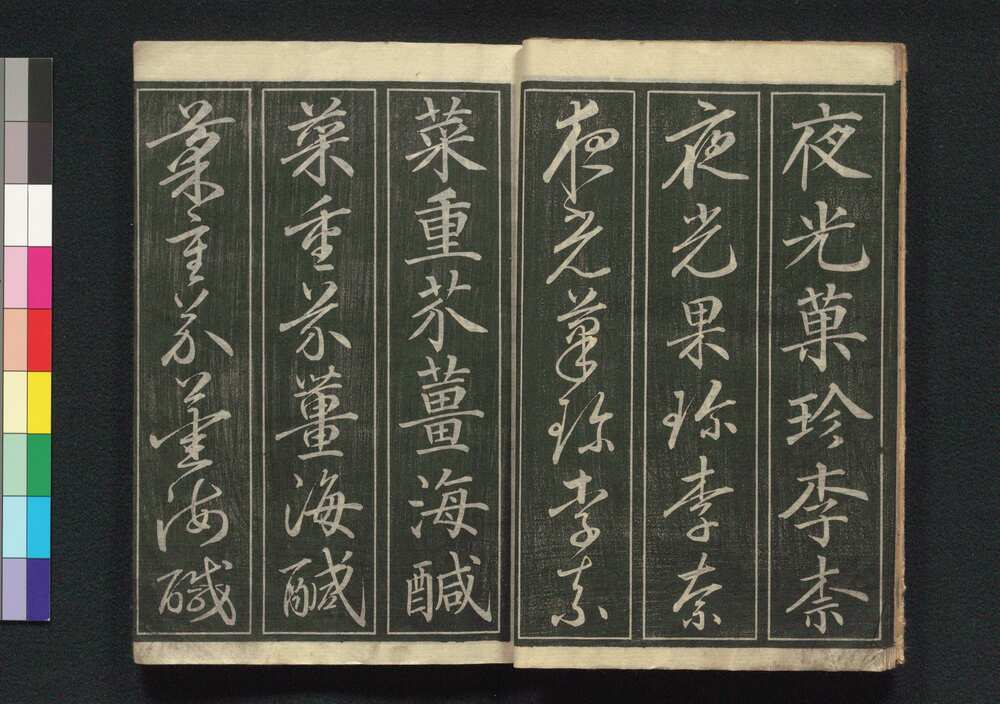 夜光菓珍李柰
夜光果珍李奈
夜光菓珍李柰
菜重芥薑海醎
菜重芥薑海醎
菜重芥薑海醎